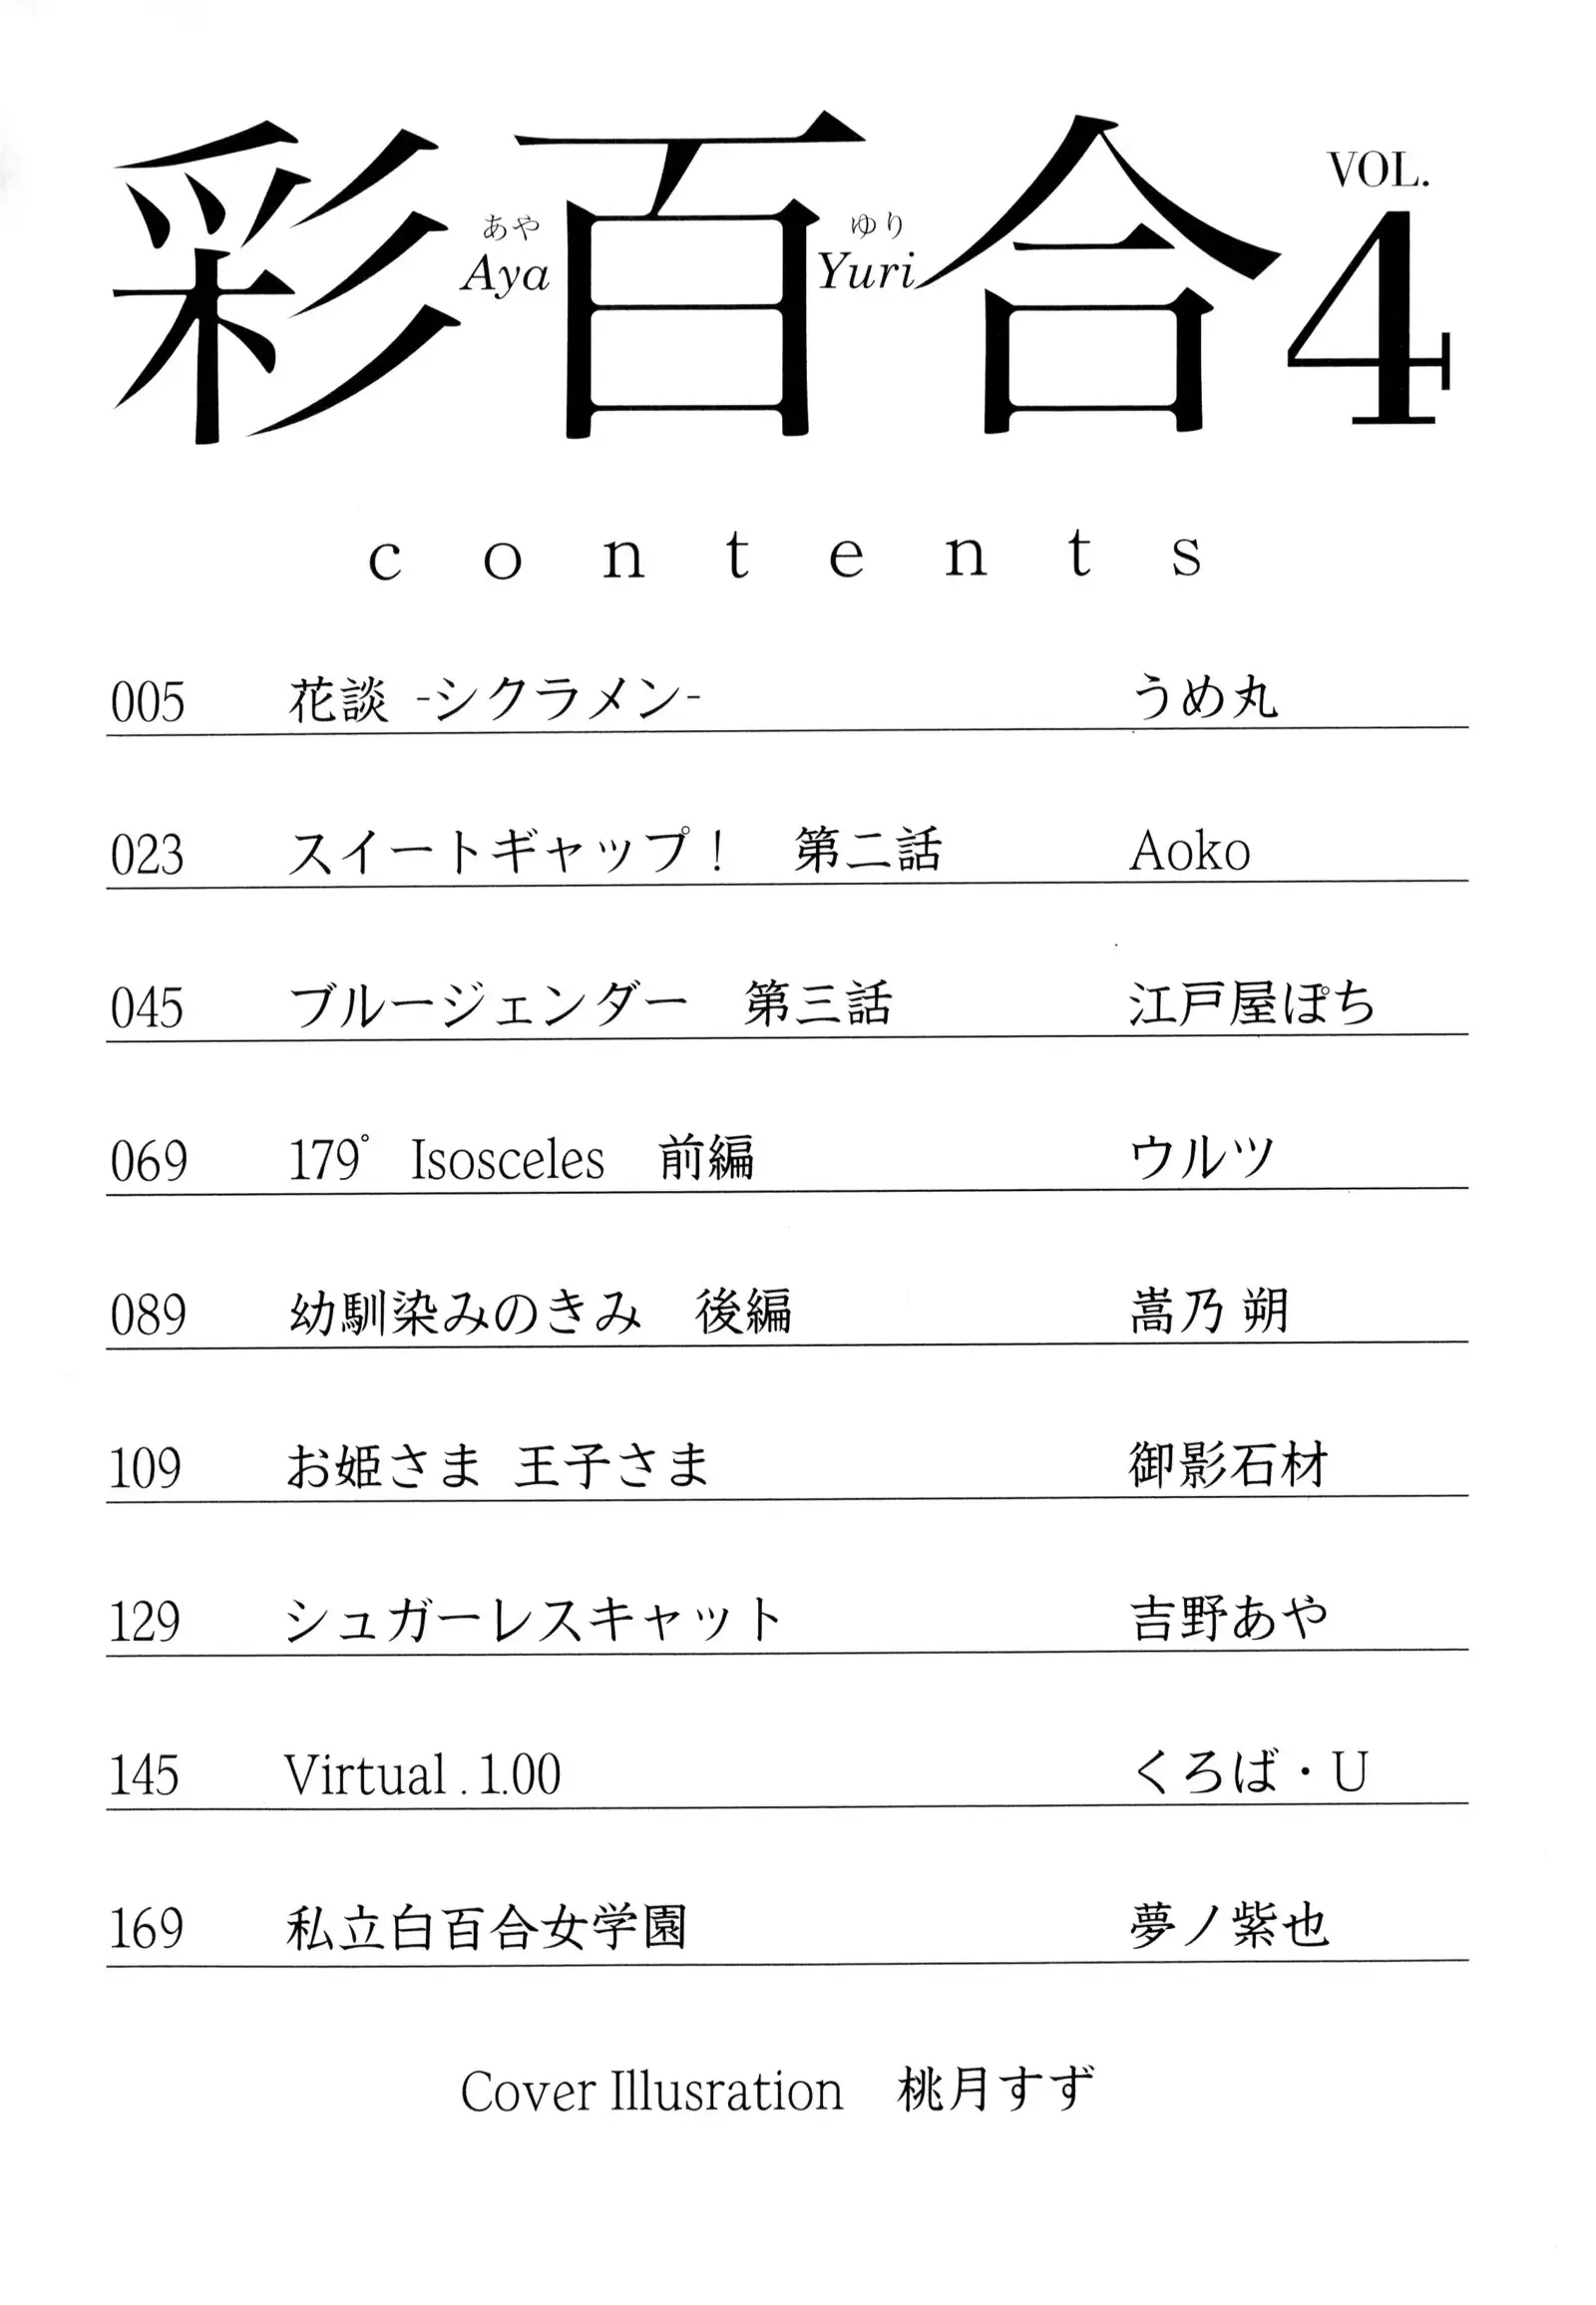 彩百合 VOL. 4
あや ゆり
Aya Yuri
contents
005 花談 -シクラメン- うめ丸
023 スイートギャップ！ 第二話 Aoko
045 ブルージェンダー 第三話 江戸屋ぽち
069 179° Isosceles 前編 ウルツ
089 幼馴染みのきみ 後編 嵩乃 朔
109 お姫さま 王子さま 御影石材
129 シュガーレスキャット 吉野あや
145 Virtual . 1.00 くろば・U
169 私立白百合女学園 夢ノ紫也
Cover Illusration 桃月すず